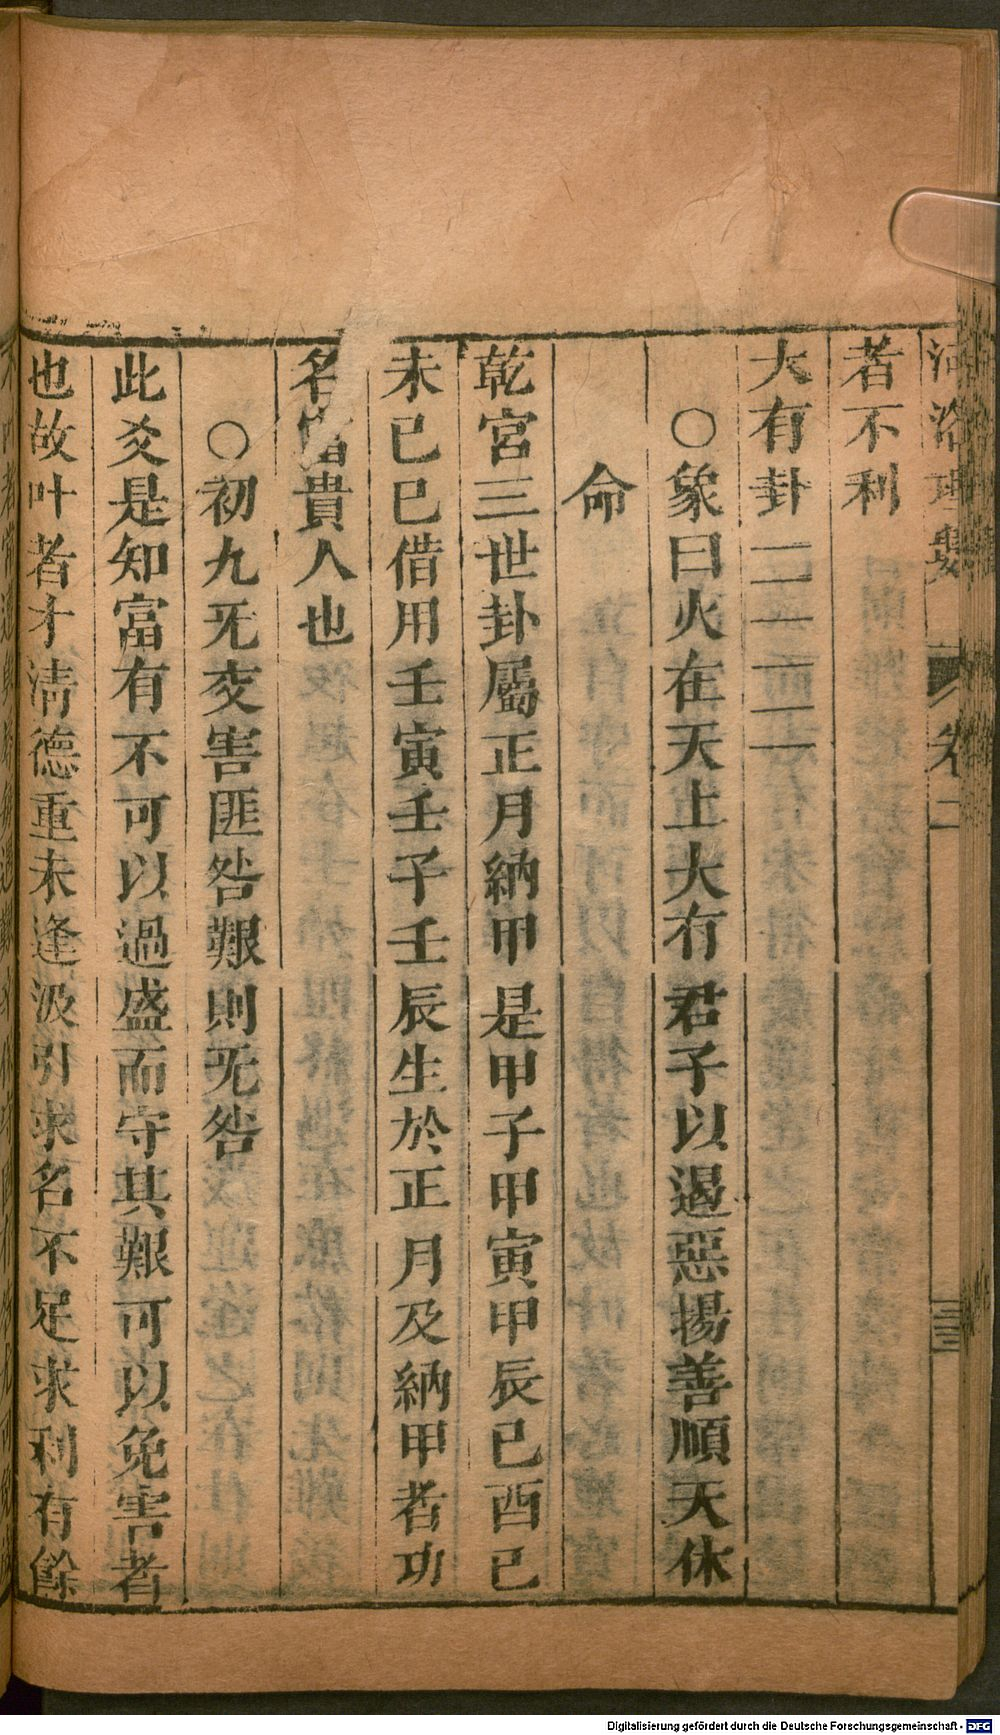 河洛理數 卷二 三三
者不利
大有卦
○象曰火在天上大有君子以遏惡揚善順天休
命
乾宮三世卦屬正月納甲是甲子甲寅甲辰己酉己
未己巳借用壬寅壬子壬辰生於正月及納甲者功
名富貴人也
○初九无交害匪咎艱則无咎
此爻是知富有不可以過盛而守其艱可以免害者
也故叶者才清德重未逢汲引求名不足求利有餘
Digitalisierung gefördert durch die Deutsche Forschungsgemeinschaft - DFG